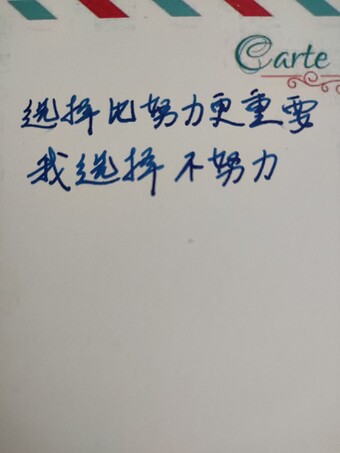 Carte
选择比努力更重要
我选择不努力